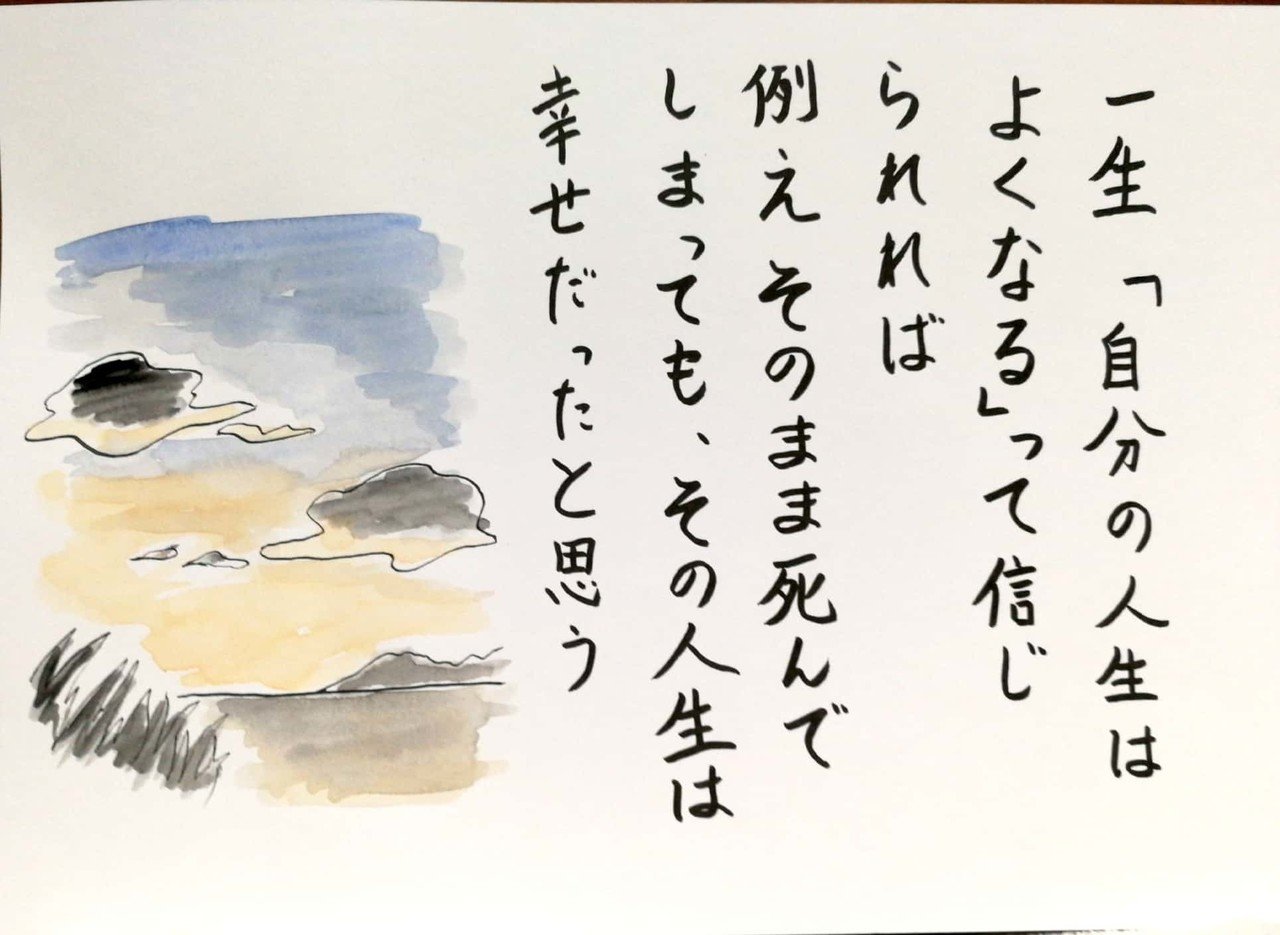 一生「自分の人生は
よくなる」って信じ
られれば
例えそのまま死んで
しまっても、その人生は
幸せだったと思う